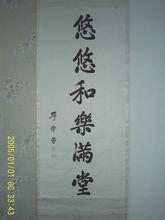 悠悠和樂滿堂
2005/01/01 00:33:43